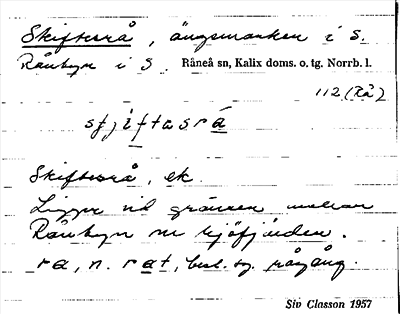 Skiftesrå, ängsmarken i s.
Rånbyn i s. Råneå sn, Kalix doms. o. tg. Norrb. l.
112 (Rå)
Skiftesrå, ek.
Ligger vid gränsen mellan
Rånbyn
ra, n. rat, best. sg. rågång.
Siv Classon 1957